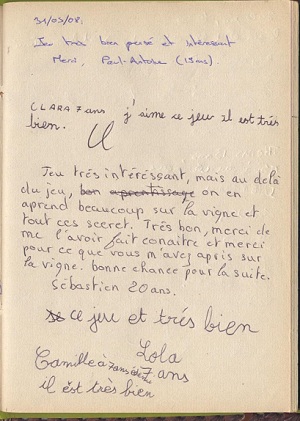 31/05/08.
Jeu très bien pensé et intéressant
Merci, Paul-Antoine (15 ans).
CLARA 7 ans j'aime ce jeu il est très
bien.
Jeu trés intéréssant, mais au delà
du jeu, bon aprentissage on en
aprend beaucoup sur la vigne et
tout ces secret. Trés bon, merci de
me l'avoir fait conaitre et merci
pour ce que vous m'avez apris sur
la vigne. bonne chance pour la suite.
Sébastien 20 ans.
ce jeu et trés bien
Lola
7 ans
Camille à 7 ans
il ést très bien